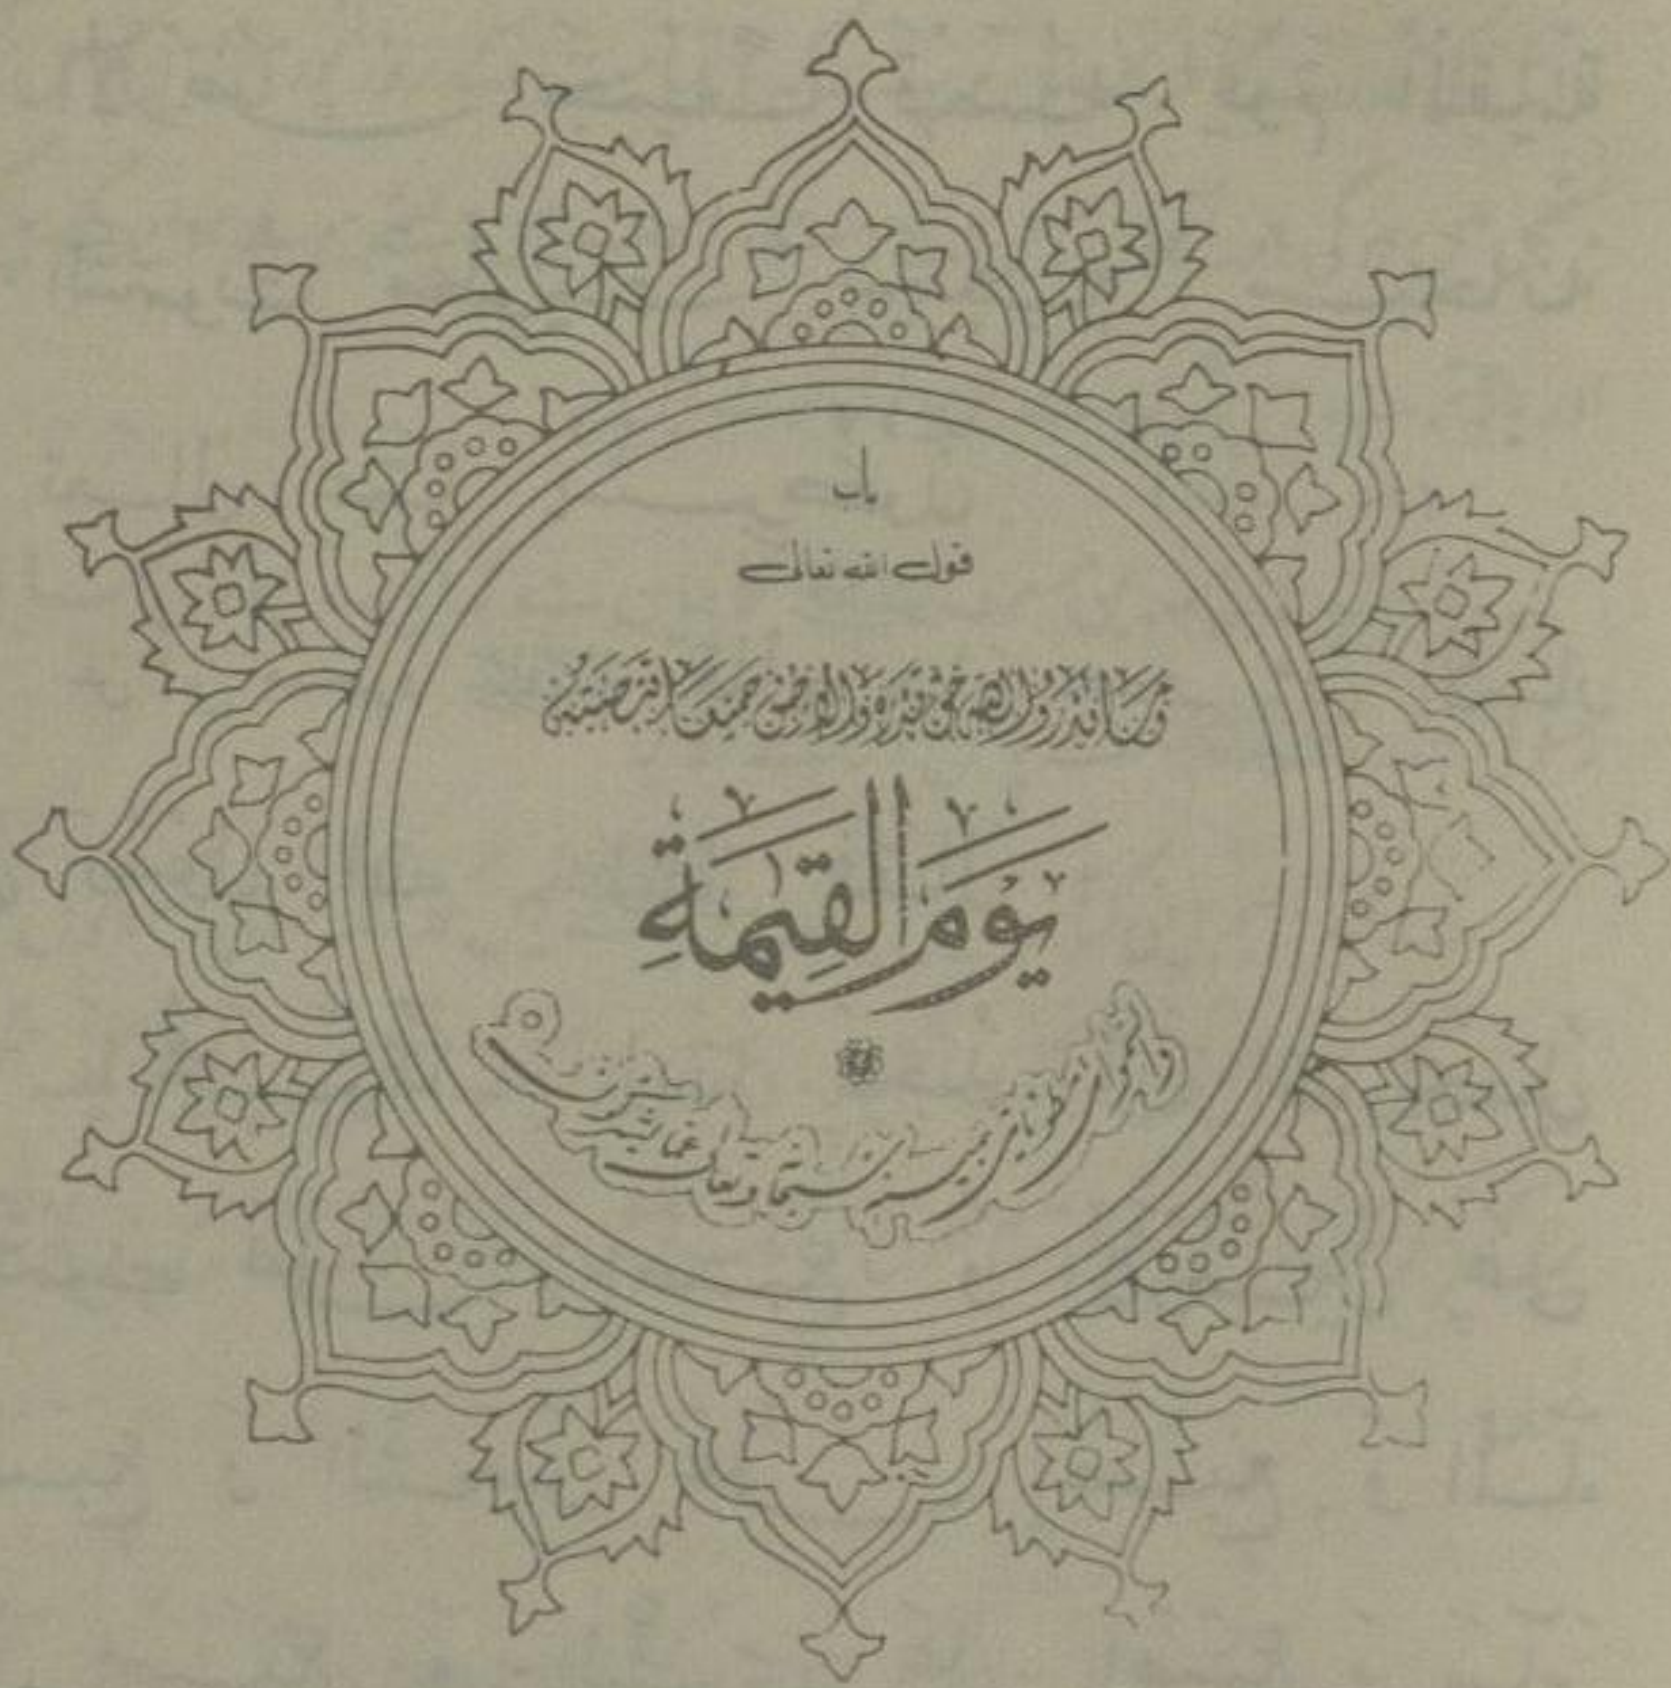 باب
قول الله تعالى
وَمَا قَدَرُوا اللَّهَ حَقَّ قَدْرِهِ وَالْأَرْضُ جَمِيعًا قَبْضَتُهُ
يَوْمَ الْقِيمَةِ
والسموات مطويات بيمينه سبحانه وتعالى عما يشركون